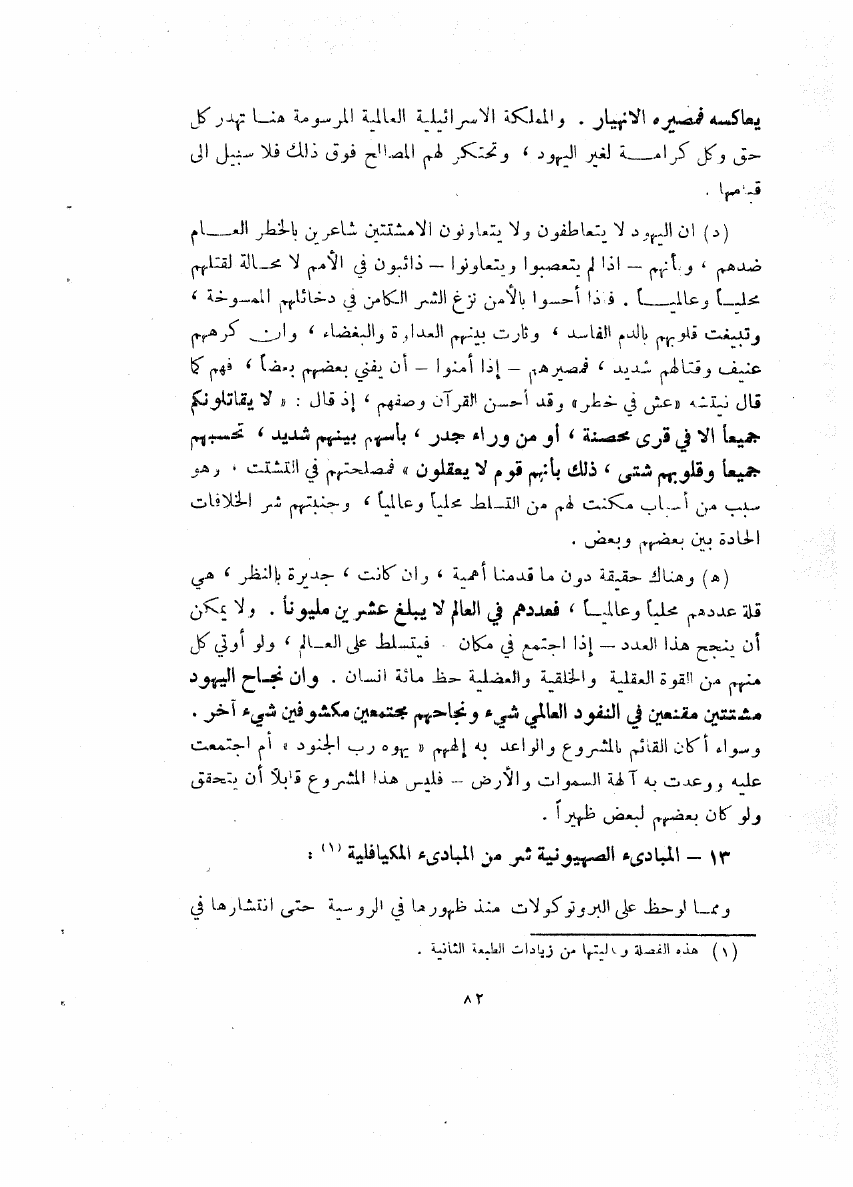 يعاكسه فمصيره الانهيار . والمملكة الاسرائيلية العالمية المرسومة هنـا تهدر كل
حق وكل كرامـــة لغير اليهود ، وتحتكر لهم المصالح فوق ذلك فلا سبيل الى
قيامها .
(د) ان اليهود لا يتعاطفون ولا يتعاونون الامشتتين شاعرين بالخطر العــام
ضدهم ، وبأنهم – اذا لم يتعصبوا ويتعاونوا – ذائبون في الأمم لا محـالة لقتلهم
محليـاً وعالميــاً . فاذا أحسوا بالأمن نزغ الشر الكامن في دخائلهم الممسوخة ،
وتبيغت قلوبهم بالدم الفاسد ، وثارت بينهم العداوة والبغضاء ، وان كرههم
عنيف وقتالهم شديد ، فمصيرهم – إذا أمنوا – أن يفني بعضهم بعضاً ، فهم كما
قال نيتشه «عش في خطر» وقد أحسن القرآن وصفهم ، إذ قال : « لا يقاتلونكم
جميعاً الا في قرى محصنة ، أو من وراء جدر ، بأسهم بينهم شديد ، تحسبهم
جميعاً وقلوبهم شتى ، ذلك بأنهم قوم لا يعقلون » فمصلحتهم في التشتت ، وهو
سبب من أسباب مكنت لهم من التسلط محلياً وعالمياً ، وجنبتهم شر الخلافات
الحادة بين بعضهم وبعض .
(ه) وهناك حقيقة دون ما قدمنا أهمية ، وان كانت ، جديرة بالنظر ، هي
قلة عددهم محلياً وعالميــاً ، فعددهم في العالم لا يبلغ عشرين مليوناً . ولا يمكن
أن ينجح هذا العدد – إذا اجتمع في مكان . فيتسلط على العـالم ، ولو أوتي كل
منهم من القوة العقلية والخلقية والعضلية حظ مائة انسان . وان نجـاح اليهود
مشتتين مقنعين في النفود العالمي شيء ونجاحهم مجتمعين مكشوفين شيء آخر .
وسواء أكان القائم بالمشروع والواعد به إلههم « يهوه رب الجنود » أم اجتمعت
عليه ووعدت به آلهة السموات والأرض – فليس هذا المشروع قابلاً أن يتحقق
ولو كان بعضهم لبعض ظهيراً .
١٣ – المبادىء الصهيونية شر من المبادىء المكيافلية (١) :
ومما لوحظ على البروتوكولات منذ ظهورها في الروسية حتى انتشارها في
(١) هذه الفصلة وتاليتها من زيادات الطبعة الثانية .
٨٢